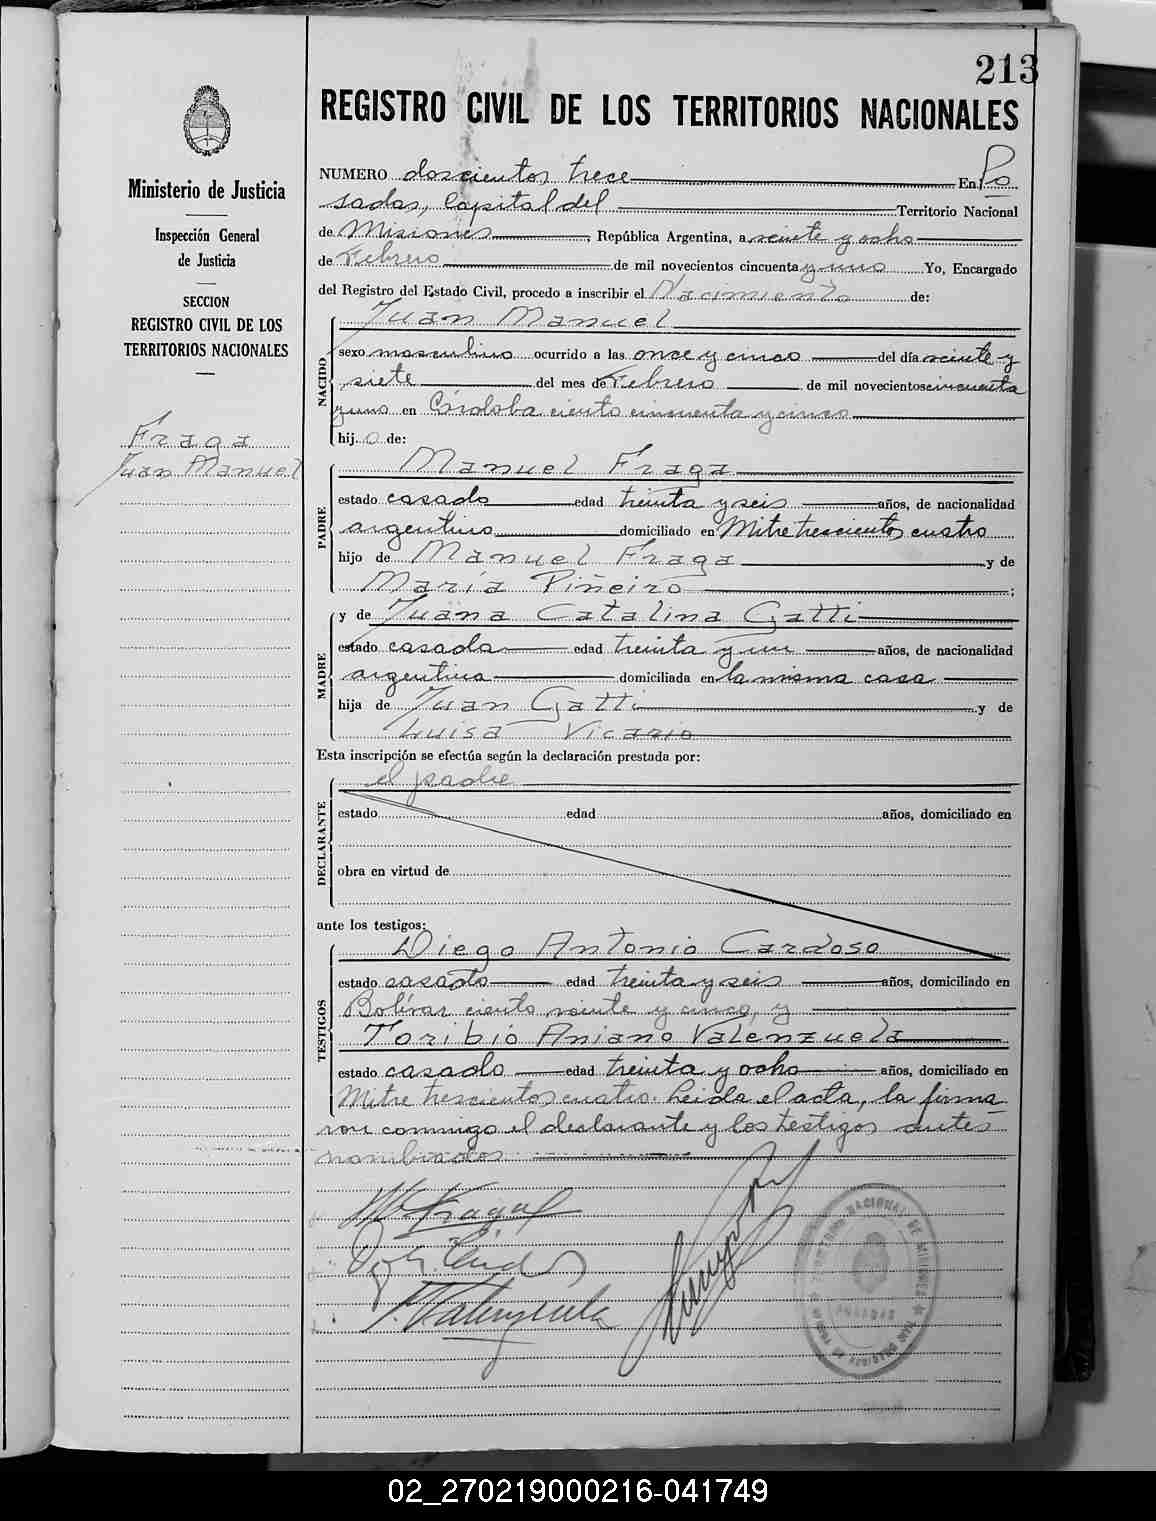 213
REGISTRO CIVIL DE LOS TERRITORIOS NACIONALES
Ministerio de Justicia
Inspección General
de Justicia
SECCION
REGISTRO CIVIL DE LOS
TERRITORIOS NACIONALES
Fraga
Juan Manuel
NUMERO doscientos trece En Po
sadas, Capital del Territorio Nacional
de Misiones, República Argentina, a veinte y ocho
de Febrero de mil novecientos cincuenta y uno Yo, Encargado
del Registro del Estado Civil, procedo a inscribir el Nacimiento de:
NACIDO
Juan Manuel
sexo masculino ocurrido a las once y cinco del día veinte y
siete del mes de Febrero de mil novecientos cincuenta
y uno en Córdoba ciento cincuenta y cinco
hijo de:
PADRE
Manuel Fraga
estado casado edad treinta y seis años, de nacionalidad
argentino domiciliado en Mitre trescientos cuatro
hijo de Manuel Fraga y de
María Piñeiro;
MADRE
y de Juana Catalina Gatti
estado casada edad treinta y un años, de nacionalidad
argentina domiciliada en la misma casa
hija de Juan Gatti y de
Luisa Vicario
Esta inscripción se efectúa según la declaración prestada por:
DECLARANTE
el padre
estado edad años, domiciliado en
obra en virtud de
ante los testigos:
TESTIGOS
Diego Antonio Cardoso
estado casado edad treinta y seis años, domiciliado en
Bolívar ciento veinte y cinco, y
Toribio Aniano Valenzuela
estado casado edad treinta y ocho años, domiciliado en
Mitre trescientos cuatro. Leida el acta, la firma
ron conmigo el declarante y los testigos antes
nombrados
M. Fraga
T. Valenzuela
NACIONAL DE MISIONES
POSADAS
02_270219000216-041749